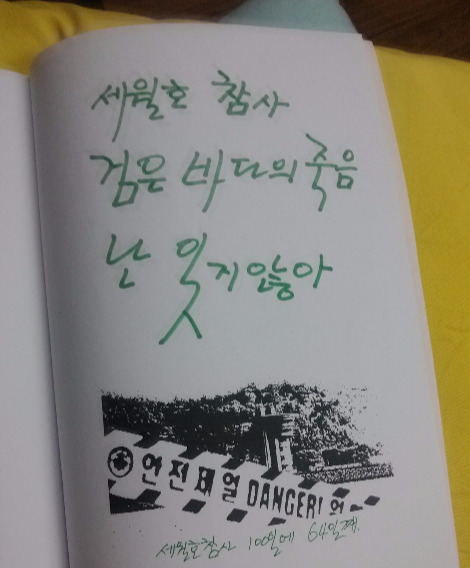 세월호 참사
검은 바다의 죽음
난 잊지않아
DANGER!
세월호참사 100일에 64일째.